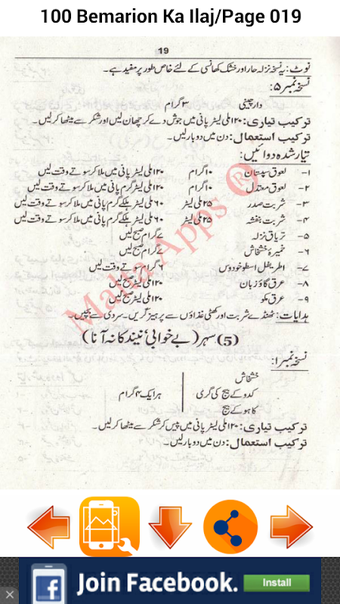 100 Bemarion Ka Ilaj/Page 019
19
نوٹ: یہ نسخہ نزلہ حار اور خشک کھانسی کے لئے خاص طور پر مفید ہے۔
نسخہ نمبر ۵:
دار چینی ۳ گرام
ترکیب تیاری: ۱۲۰ ملی لیٹر پانی میں جوش دے کر چھان لیں اور شکر سے میٹھا کر لیں۔
ترکیب استعمال: دن میں دو بار لیں۔
تیار شدہ دوائیں:
۱- لعوق سپستان ۱۰ گرام ۱۲۰ ملی لیٹر پانی میں ملا کر سوتے وقت لیں
۲- لعوق معتدل ۱۰ گرام ۱۲۰ ملی لیٹر گرم پانی میں ملا کر سوتے وقت لیں
۳- شربت صدر ۲۵ ملی لیٹر ۶۰ ملی لیٹر ہلکے گرم پانی میں ملا کر سوتے وقت لیں
۴- شربت بنفشہ ۲۵ ملی لیٹر ۶۰ ملی لیٹر ہلکے گرم پانی میں ملا کر سوتے وقت لیں
۵- تریاق نزلہ ۷ گرام صبح لیں
۶- خمیرہ خشخاش ۷ گرام صبح لیں
۷- اطریفل اسطوخودوس ۶ گرام سوتے وقت لیں
۸- عرق گاؤزبان ۱۲۰ ملی لیٹر صبح لیں
۹- عرق مکو ۱۲۰ ملی لیٹر صبح لیں
ہدایات: ٹھنڈے شربت اور کھٹی غذاؤں سے پرہیز کریں۔ سردی سے بچیں۔
(5) سہر (بے خوابی، نیند کا نہ آنا)
نسخہ نمبر ۱:
خشخاش
کدو کے بیج کی گری ہر ایک ۳ گرام
کاہو کے بیج
ترکیب تیاری: ۱۲۰ ملی لیٹر پانی میں پیس کر شکر سے میٹھا کر لیں۔
ترکیب استعمال: دن میں دو بار لیں۔
Malik Apps ®
Join Facebook.
Install